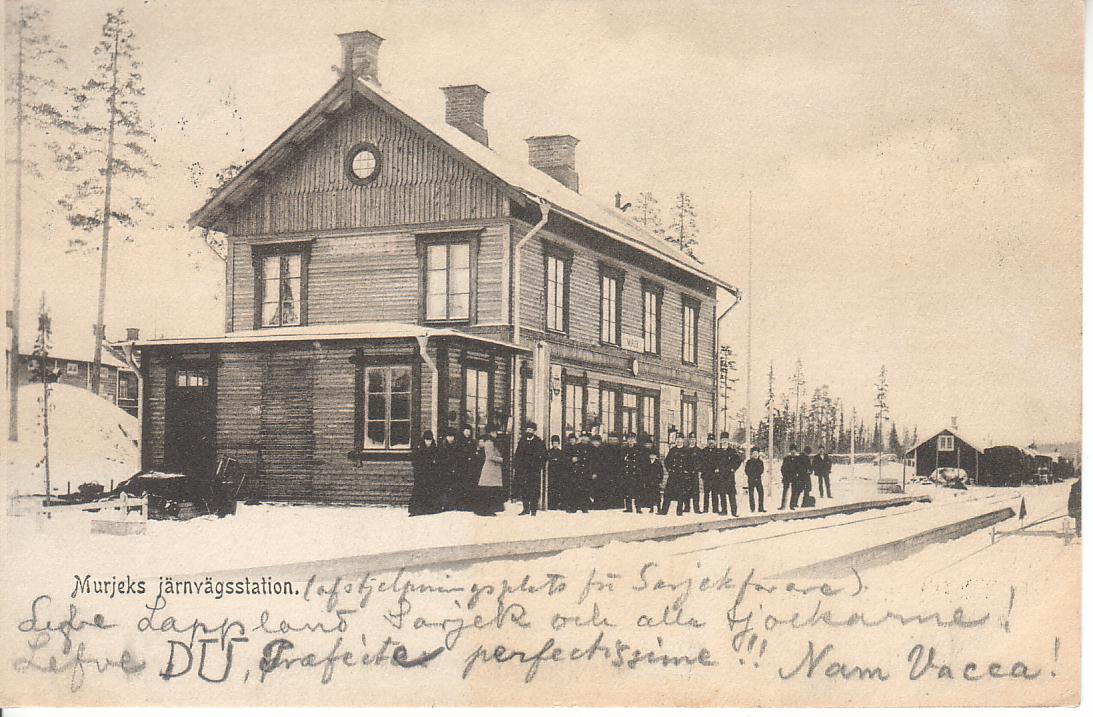 Murjeks järnvägsstation. (afstjelpningsplats för Sarjekfarare)
Lefve Lappland Sarjek och alla tjockarne!
Lefve DU, Præfecte perfectissime!!! Nam Vacca!